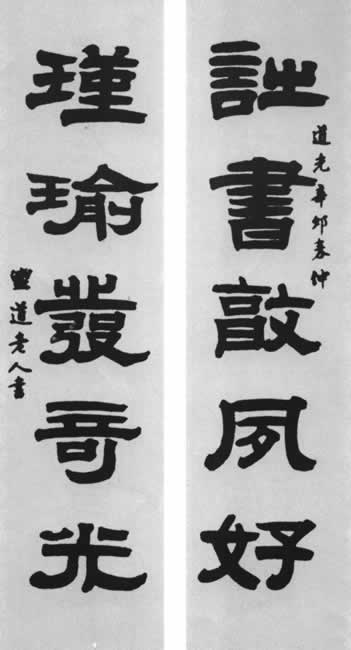 詩書敦夙好
道光辛卯春仲
瑾瑜發奇光
道老人書